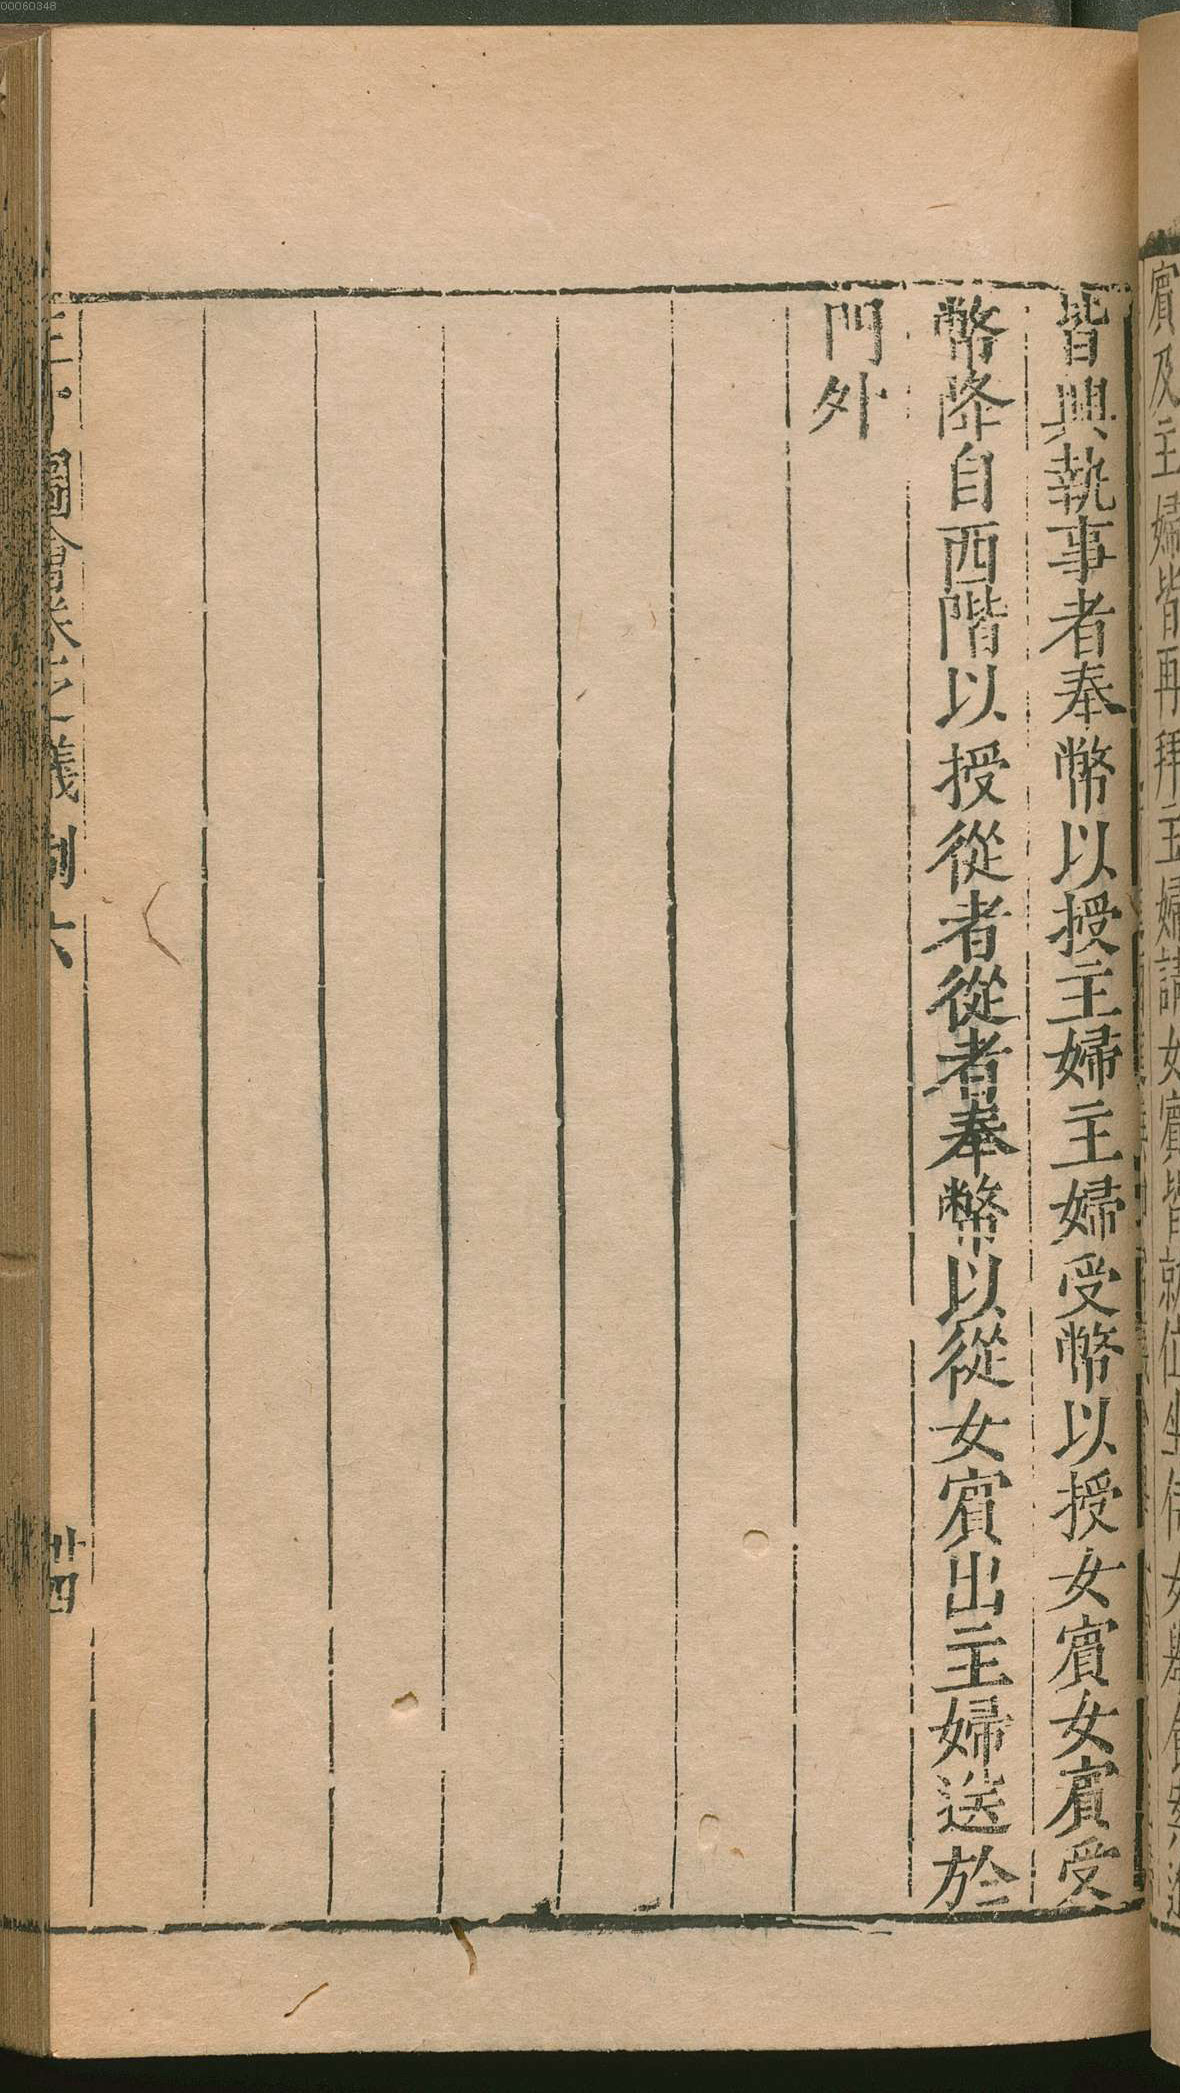 賓及主婦皆再拜主婦請女賓皆就位坐侍女舉食案進
皆興執事者奉幣以授主婦主婦受幣以授女賓女賓受
幣降自西階以授從者從者奉幣以從女賓出主婦送於
門外
圖會卷之儀制六
卅四
00060348